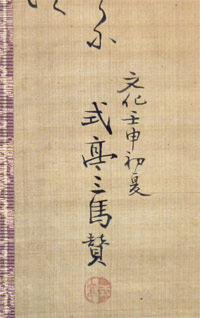 文化壬申初夏
式亭三馬賛